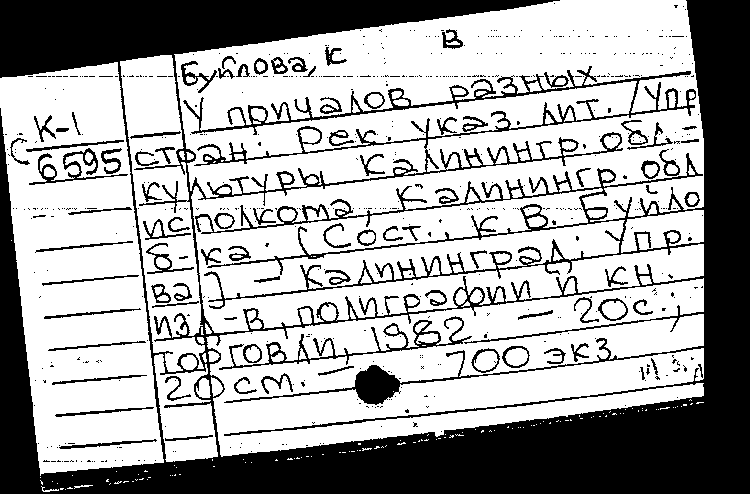 Буйлова, К В
У причалов разных
К-1
С 6595 стран: Рек. указ. лит. / Упр
культуры Калинингр. обл.-
исполкома, Калинингр. обл
б-ка; [Сост.: К.В. Буйло
ва]. — Калининград: Упр.
изд-в, полиграфии и кн.
торговли, 1982. — 20с.;
20 см. — 700 экз.